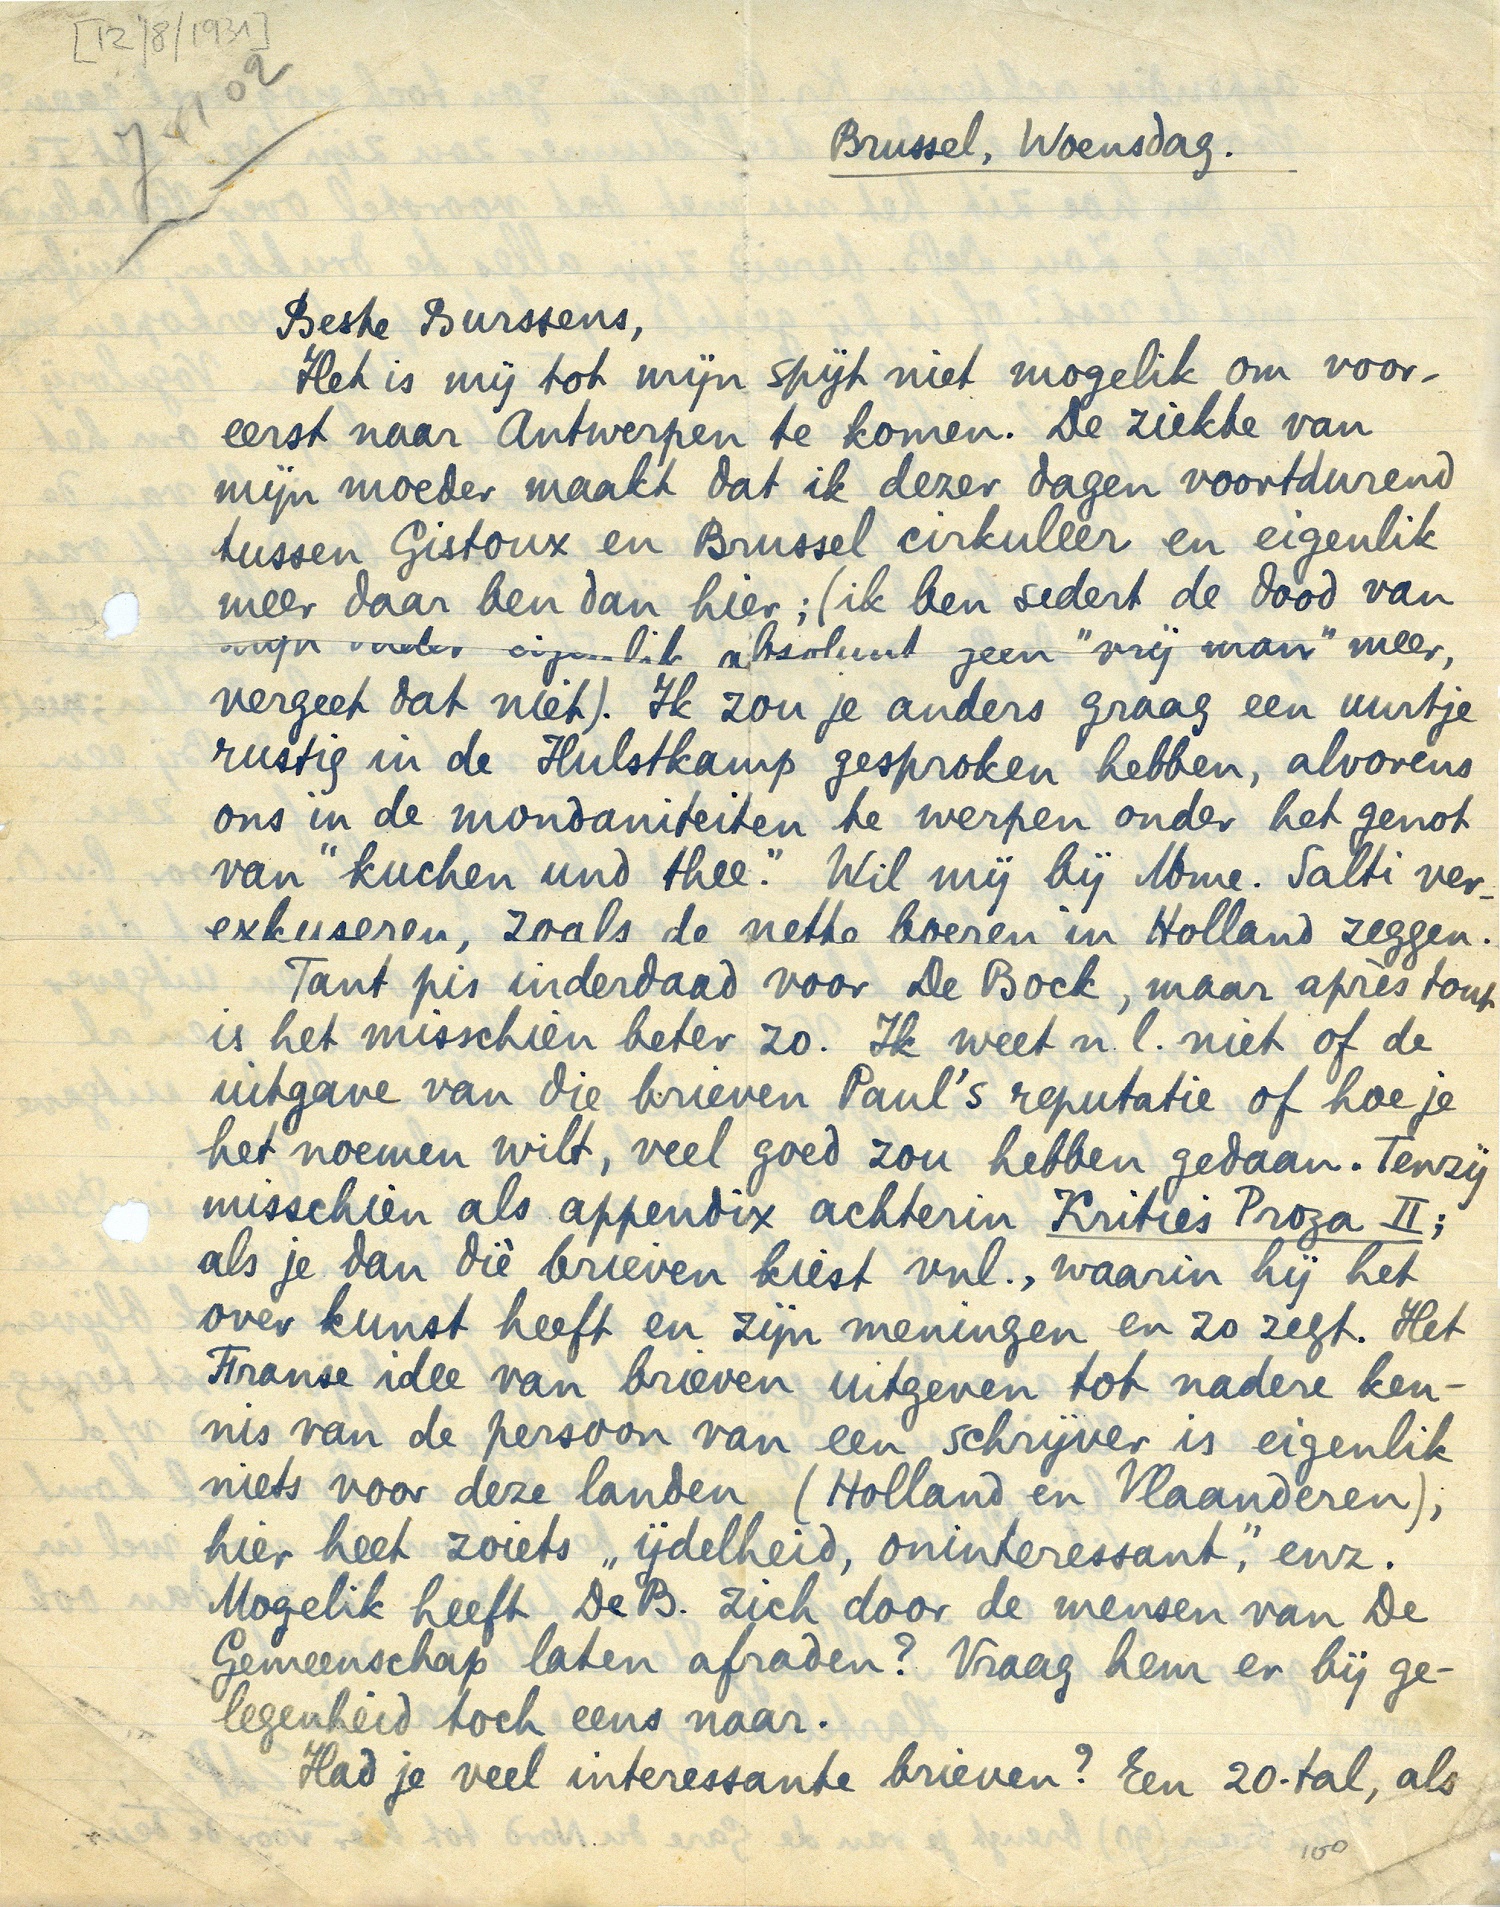 [12/8/1931]
Brussel, Woensdag.
Beste Burssens,
Het is mij tot mijn spijt niet mogelik om voor-
eerst naar Antwerpen te komen. De ziekte van
mijn moeder maakt dat ik dezer dagen voortdurend
tussen Gistoux en Brussel cirkuleer en eigenlik
meer daar ben dan hier; (ik ben sedert de dood van
mijn vader eigenlik absoluut geen "vrij man" meer,
vergeet dat niet). Ik zou je anders graag een uurtje
rustig in de Hulstkamp gesproken hebben, alvorens
ons in de mondaniteiten te werpen onder het genot
van "kuchen und thee." Wil mij bij Mme. Salti ver-
exkuseren, zoals de nette boeren in Holland zeggen.
Tant pis inderdaad voor De Bock, maar après tout
is het misschien beter zo. Ik weet n.l. niet of de
uitgave van die brieven Paul's reputatie of hoe je
het noemen wilt, veel goed zou hebben gedaan. Tenzij
misschien als appendix achterin Krities Proza II;
als je dan dié brieven kiest vnl., waarin hij het
over kunst heeft en zijn meningen en zo zegt. Het
Franse idee van brieven uitgeven tot nadere ken-
nis van de persoon van een schrijver is eigenlik
niets voor deze landen (Holland en Vlaanderen),
hier heet zoiets „ijdelheid, oninteressant", enz.
Mogelik heeft De B. zich door de mensen van De
Gemeenschap laten afraden? Vraag hem er bij ge-
legenheid toch eens naar.
Had je veel interessante brieven? Een 20-tal, als
100